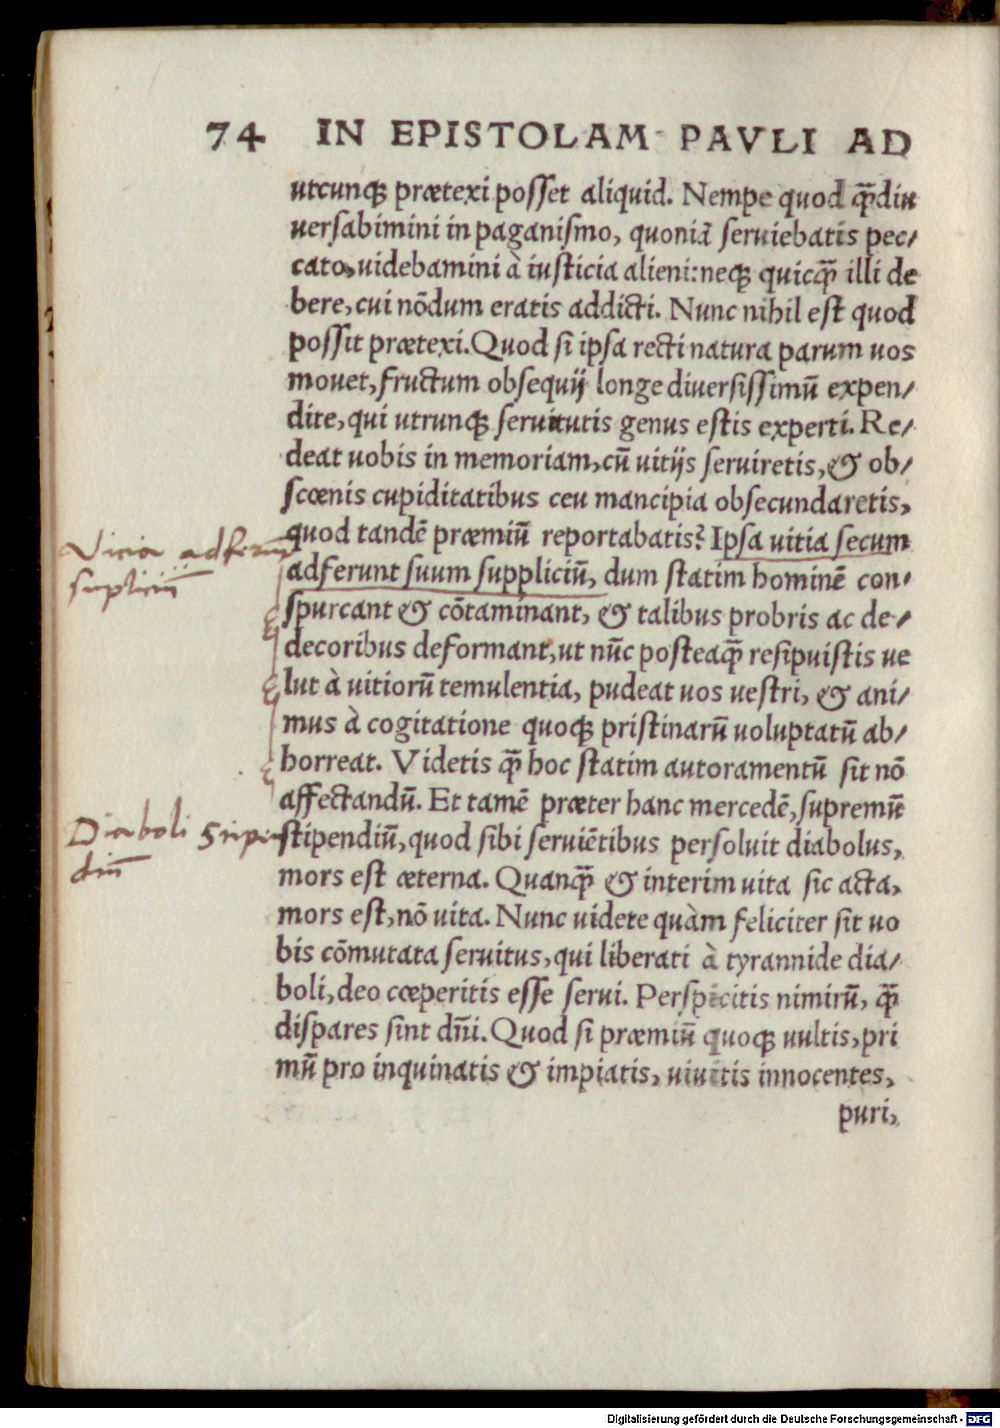 74 IN EPISTOLAM PAVLI AD
utcunqꝫ prætexi posset aliquid. Nempe quod qͫdiu
uersabimini in paganismo, quoniā seruiebatis pec/
cato, uidebamini à iusticia alieni: neqꝫ quicqͫ illi de
bere, cui nōdum eratis addicti. Nunc nihil est quod
possit prætexi. Quod si ipsa recti natura parum uos
mouet, fructum obsequij longe diuersissimū expen/
dite, qui utrunqꝫ seruitutis genus estis experti. Re/
deat uobis in memoriam, cū uitijs seruiretis, & ob/
scœnis cupiditatibus ceu mancipia obsecundaretis,
quod tandē præmiū reportabatis? Ipsa uitia secum
adferunt suum suppliciū, dum statim hominē con/
spurcant & cōtaminant, & talibus probris ac de/
decoribus deformant, ut nūc posteaqͫ resipuistis ue
lut à uitiorū temulentia, pudeat uos uestri, & ani/
mus à cogitatione quoqꝫ pristinarū uoluptatū ab/
horreat. Videtis qͫ hoc statim autoramentū sit nō
affectandū. Et tamē præter hanc mercedē, supremū
stipendiū, quod sibi seruiētibus persoluit diabolus,
mors est æterna. Quanqͫ & interim uita sic acta,
mors est, nō uita. Nunc uidete quàm feliciter sit uo
bis cōmutata seruitus, qui liberati à tyrannide dia/
boli, deo cœperitis esse serui. Perspicitis nimirū, qͫ
dispares sint dñi. Quod si præmiū quoqꝫ uultis, pri
mū pro inquinatis & impiatis, uiuitis innocentes,
puri,
Vicia adferunt
supliciū
Diaboli Stipen
diū
Digitalisierung gefördert durch die Deutsche Forschungsgemeinschaft - DFG